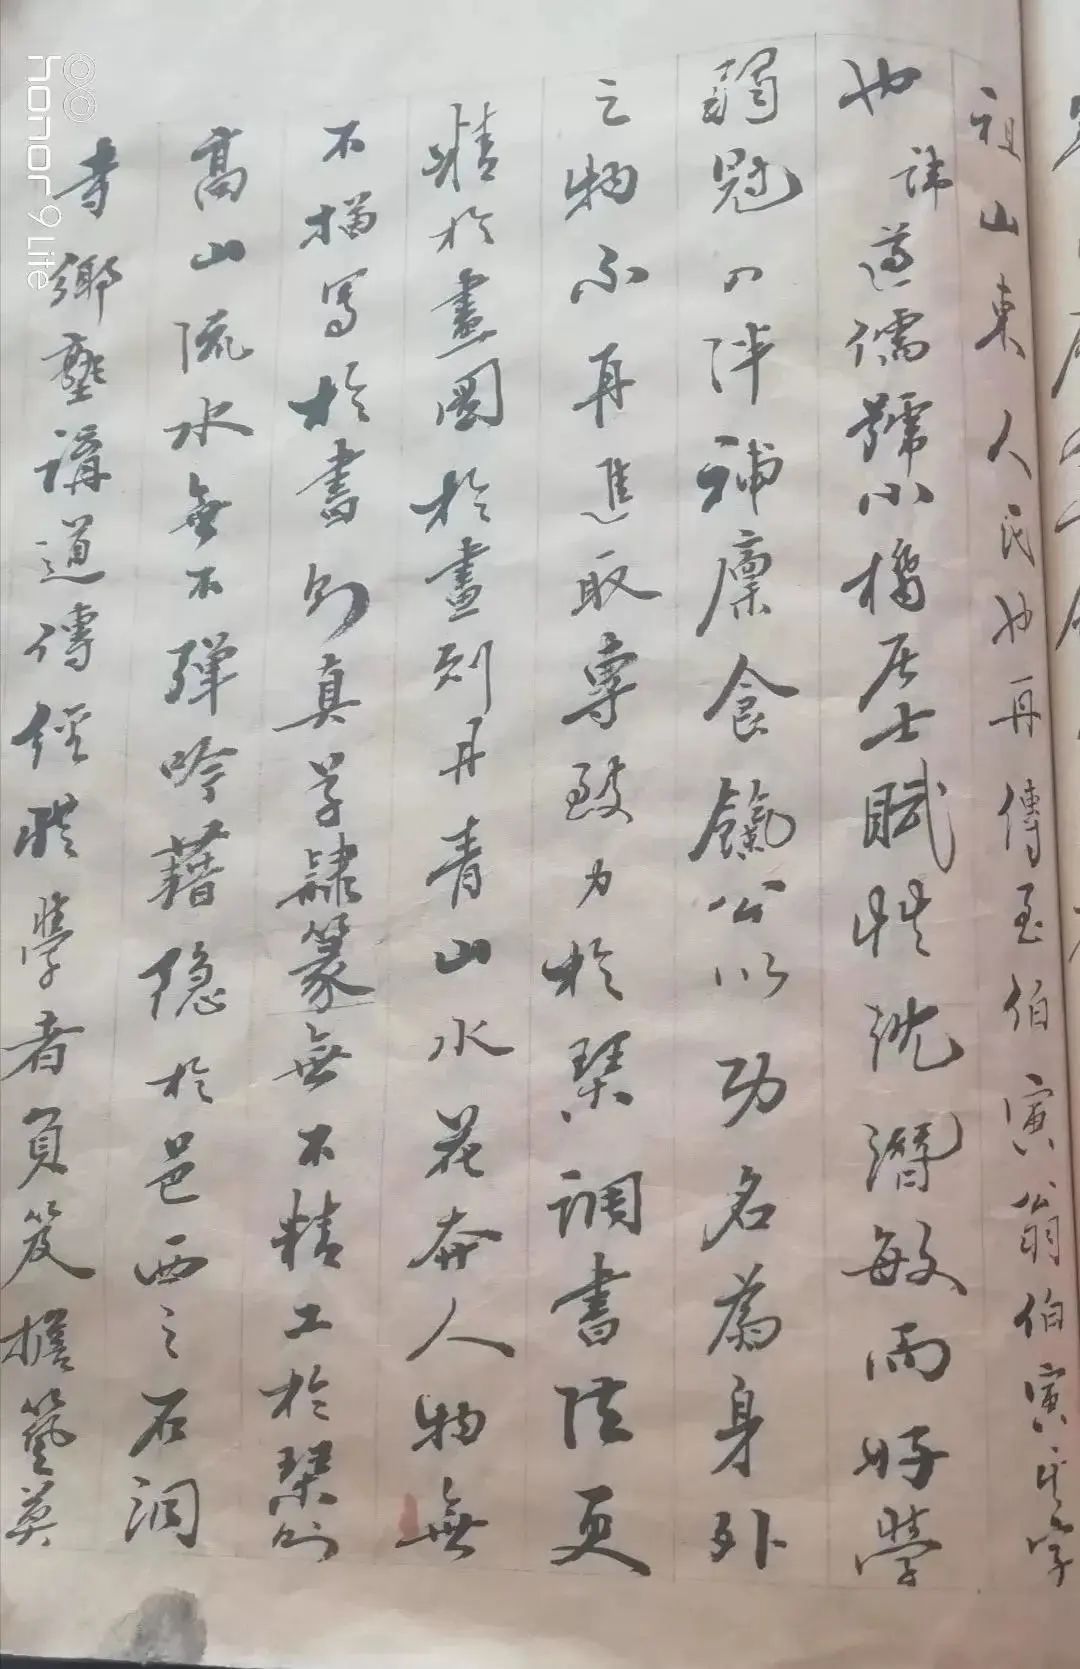 祖山東人氏也再傳至伯寅翁伯寅其字
也諱遵儒號小橋居士賦性沈潛敏而好學
弱冠入泮補廩食餼公以功名爲身外
之物不再進取專致力於琹調書法更
精於畫圖於畫則丹青山水花奔人物無
不描寫於書則真草隸篆無不精工於琹則
高山流水無不弹吟藉隐於邑西之石洞
寺鄉塾講道傳經樂學者負笈擔簦莫
honor 9 Lite